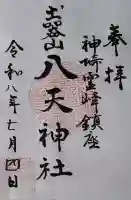 奉拝
神埼霊峰鎮座
土器山
八天神社
令和八年七月四日